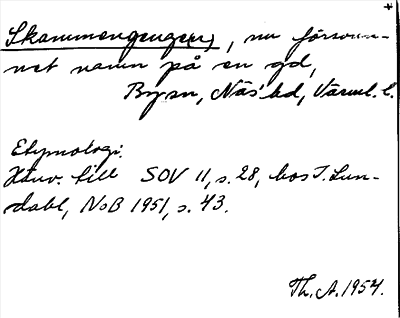 Skammengenge(n), nu försvun-
net namn på en gd,
By sn, Näs hd, Värml. l.
Etymologi.
Hänv. till SOV 11, s. 28, hos I. Lun-
dahl, NoB 1951, s. 43.
Th. A. 1954.